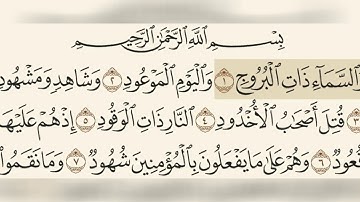 بِسْمِ ٱللَّهِ ٱلرَّحْمَٰنِ ٱلرَّحِيمِ
ٱلسَّمَآءِ ذَاتِ ٱلْبُرُوجِ ١ وَٱلْيَوْمِ ٱلْمَوْعُودِ ٢ وَشَاهِدٍ وَمَشْهُودٍ
٣ قُتِلَ أَصْحَٰبُ ٱلْأُخْدُودِ ٤ ٱلنَّارِ ذَاتِ ٱلْوَقُودِ ٥ إِذْ هُمْ عَلَيْهَا
قُعُودٌ ٦ وَهُمْ عَلَىٰ مَا يَفْعَلُونَ بِٱلْمُؤْمِنِينَ شُهُودٌ ٧ وَمَا نَقَمُوا۟